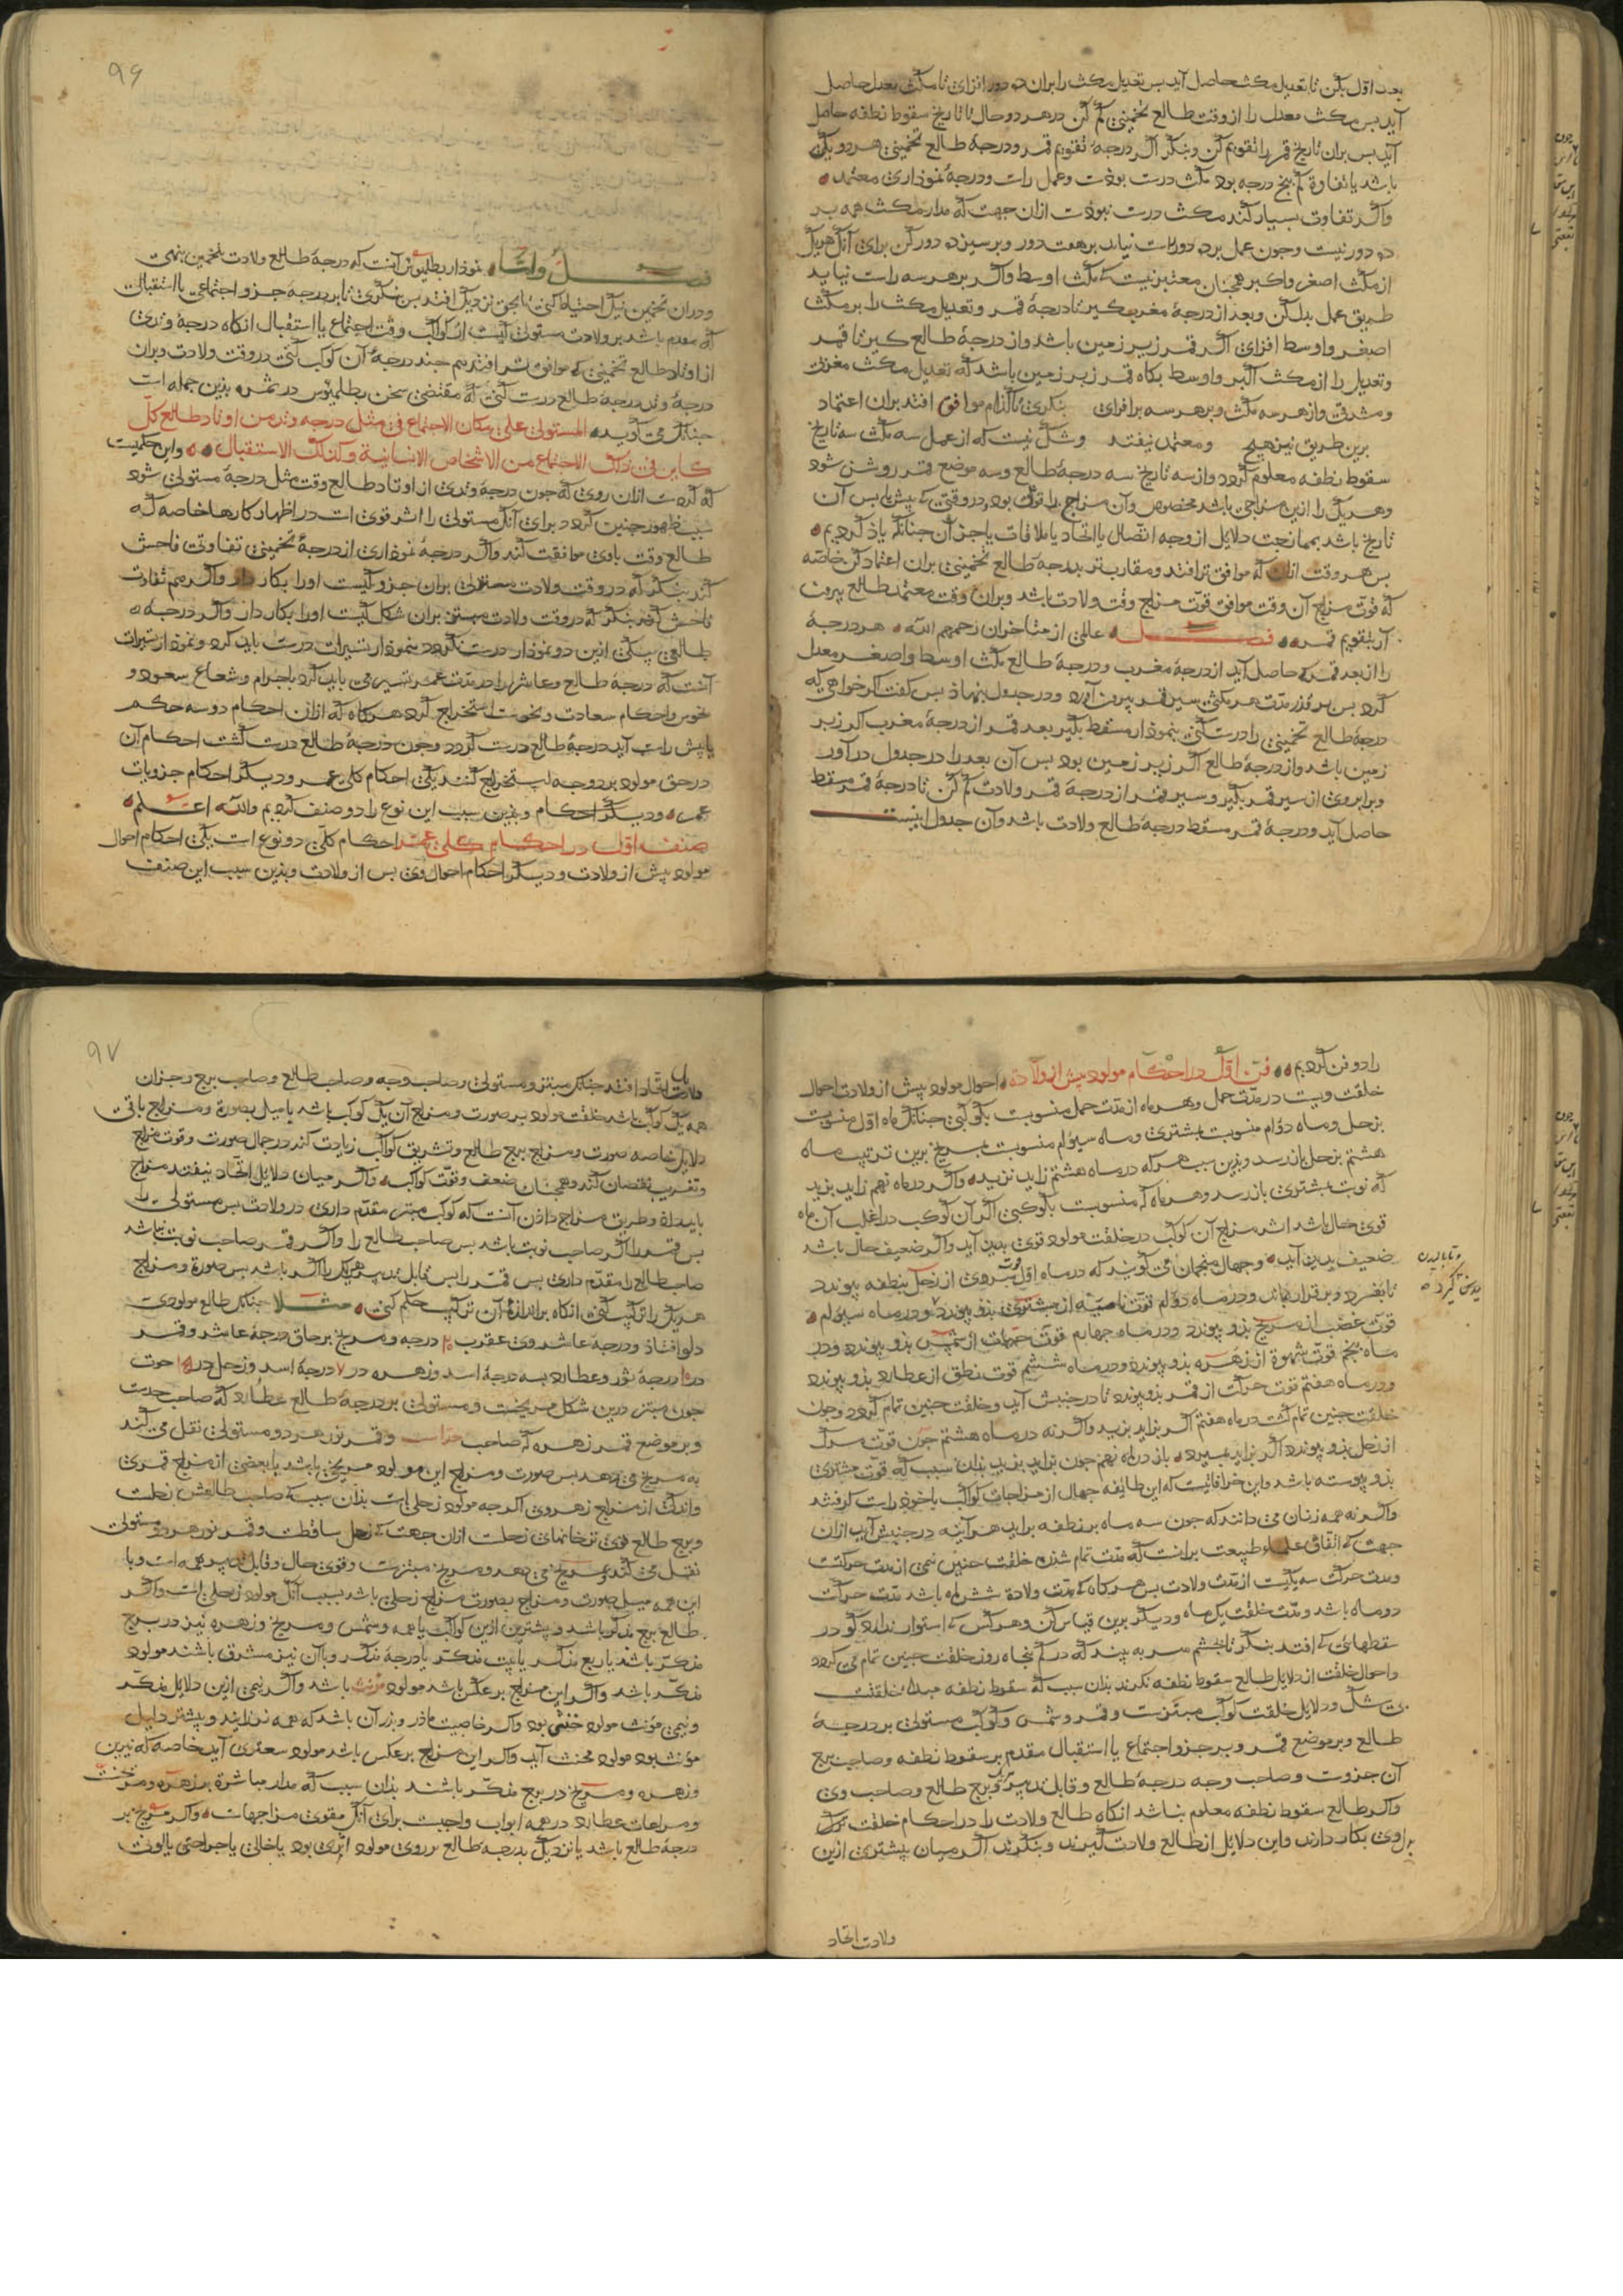 بعد اول بکن تا تعدیل مکث حاصل آید بس تعدیل مکث را بران ده دور افزای تا مکث معدل حاصل
آید بس مکث معدل را از وقت طالع تخمینی کم کن در هر دو حال تا تاریخ سقوط نطفه حاصل
آید بس بران تاریخ قمر را تقویم کن و بنگر اگر درجهٔ تقویم قمر و درجهٔ طالع تخمینی هر دو یکی
باشد یا تفاوة کم بنج درجه بود مکث درست بوذست و عمل راست و درجهٔ نموذاری معتمد
و اگر تفاوت بسیار کند مکث درست نبوذست ازان جهت که مدار مکث همه بر
ده دور نیست و جون عمل بر ده دور راست نیاید بر هفت دور و بر سیزده دور کن برای آنک هر یک
از مکث اصغر و اکبر همجنان معتبرنیست که مکث اوسط و اگر بر هر سه راست نیاید
طریق عمل بدل کن و بعد از درجهٔ مغرب کیر تا درجهٔ قمر و تعدیل مکث را بر مکث
اصغر و اوسط افزای اگر قمر زیر زمین باشد و از درجهٔ طالع کیر تا قمر
و تعدیل را از مکث اکبر و اوسط بکاه قمر زیر زمین باشد که تعدیل مکث مغربی
و مشرقی و از هر سه مکث و بر هر سه برافزای بنکری تا کدام موافق افتد بران اعتماد
برین طریق نیز هیج ومعتمد نیفتد و شک نیست که از عمل سه مکث سه تاریخ
سقوط نطفه معلوم کردد و از سه تاریخ سه درجهٔ طالع و سه موضع قمر روشن شود
و هر یک را ازین مزاجی باشد مخصوص و آن مزاج را قوتی بود در وقتی که بیش یا بس آن
تاریخ باشد بممازجت دلایل از وجه اتصال یا اتحاد یا ملاقات یا جز آن جنانک یاذ کردیم
بس هر وقت ازان که موافق تر افتد و مقارب تر بدرجهٔ طالع تخمینی بران اعتماد کن خاصه
که قوت مزاج آن وقت موافق قوت مزاج وقت ولادت باشد و بران وقت معتمد طالع بیرون
آر بتقویم قمر فصل عالمی از متاخران رحمهم الله هر درجهٔ
را از بعد قمر که حاصل آید از درجهٔ مغرب و درجهٔ طالع مکث اوسط و اصغر معدل
کرد بس بر قدر مدت هر مکثی سیر قمر بیرون آورد و در جدول بنهاذ بس کفت اکر خواهی که
درجهٔ طالع تخمینی را درست کنی بنموذار مسقط بکیر بعد قمر از درجهٔ مغرب اکر زبر
زمین باشد و از درجهٔ طالع اکر زیر زمین بود بس آن بعد را در جدول درآور
و برابر وی از سیر قمر بکیر و سیر قمر از درجهٔ قمر ولادت کم کن تا درجهٔ قمر مسقط
حاصل آید و درجهٔ قمر مسقط درجهٔ طالع ولادت باشد و آن جدول اینست
۹۶
فصل و اما نموذار بطلیوس آنست که درجهٔ طالع ولادت بتخمین بنهی
و دران تخمین نیک احتیاط کنی تا بحق نزدیک افتد بس بنکری تا بر درجهٔ جزو اجتماعی یا استقبالی
که مقدم باشد بر ولادت مستولی کیست از کواکب وقت اجتماع یا استقبال انکاه درجهٔ وتدی
از اوتاد طالع تخمینی که موافق تر افتد هم جند درجهٔ آن کوکب کنی در وقت ولادت و بران
درجهٔ وتد درجهٔ طالع درست کنی که مقتضی سخن بطلمیوس در ثمره بذین جمله است
جنانک می کوید المستولی علی مکان الاجتماع فی مثل درجه وتد من اوتاد طالع کل
کاین فی ذلک الاجتماع من الاشخاص الانسانیة وکذلک الاستقبال و این حکمیست
که کردست ازان روی که جون درجهٔ وتدی از اوتاد طالع وقت مثل درجهٔ مستولی شود
سبب ظهور جنین کردد برای آنک مستولی را اثر قوی است در اظهار کارها خاصه که
طالع وقت با وی موافقت کند و اکر درجهٔ نموذاری از درجهٔ تخمینی تفاوت فاحش
کند بنکر که در وقت ولادت مستولی بران جزو کیست اورا بکار دار و اگر هم تفاوت
فاحش کند بنکر که در وقت ولادت مبتز بران شکل کیست اورا بکار دار و اکر درجهٔ
طالعی بیکی ازین دو نموذار درست نکردد بنموذار تسییرات درست باید کرد و نموذار تسییرات
آنست که درجهٔ طالع و عاشر را در مدت عمر تسییر می باید کرد باجرام و شعاع سعود و
نحوس و احکام سعادت و نحوست استخراج کرد هر کاه که ازان احکام دو سه حکم
یا بیش راست آید درجهٔ طالع درست کردد و جون درجهٔ طالع درست کشت احکام آن
در حق مولود بر دو وجه استخراج کنند یکی احکام کلی عمر و دیکر احکام جزویات
عمر و دیکر احکام و بذین سبب این نوع را دو صنف کردیم والله اعلم
صنف اول در احکام کلی عمر احکام کلی دو نوع است یکی احکام احوال
مولود بیش از ولادت و دیکر احکام احوال وی بس از ولادت و بذین سبب این صنف
را دو فن کردیم فن اول در احکام مولود بیش از ولادة احوال مولود بیش از ولادت احوال
خلقت ویست در مدت حمل و هر ماه از مدت حمل منسوبست بکوکبی جنانک ماه اول منسوبست
بزحل و ماه دوم منسوبست بمشتری و ماه سیوم منسوبست بمریخ برین ترتیب ماه
هشتم بزحل باز رسد و بذین سبب هر که در ماه هشتم زاید نزید و اکر در ماه نهم زاید بزید
که نوبت بمشتری باز رسد و هر ماه که منسوبست بکوکبی اکر آن کوکب در اغلب آن ماه
قوی حال باشد اثر مزاج آن کوکب در خلقت مولود قوی بدید آید و اکر ضعیف حال باشد
ضعیف بدید آید و جهال منجمان می کویند که در ماه اول قوت سردی از زحل بنطفه بیوندد
تا بفسرد و برقرار بماند و در ماه دوم قوت نامیه از مشتری بذو بیوندد و در ماه سیوم
قوت غضب از مریخ بذو بیوندد و در ماه جهارم قوت حیات از شمس بذو بیوندد و در
ماه بنجم قوت شهوة از زهره بذو بیوندد و در ماه ششم قوت نطق از عطارد بذو بیوندد
و در ماه هفتم قوت حرکت از قمر بذو بیوندد تا در جنبش آید و خلقت جنین تمام کردد و جون
خلقت جنین تمام کشت در ماه هفتم اکر بزاید بزید و اکر نه در ماه هشتم جون قوت مرک
از زحل بذو بیوندد اکر بزاید بمیرد باز در ماه نهم جون بزاید بزید بذان سبب که قوت مشتری
بذو بیوسته باشد و این خرافاتیست که این طایفه جهال از مزاجات کواکب باخوذ راست کرفتند
و اکر نه همه زنان می دانند که جون سه ماه بر نطفه براید هر آینه در جنبش آید ازان
جهت که اتفاق علماء طبیعت برانست که مدت تمام شدن خلقت جنین نیمی از مدت حرکتست
و مدت حرکت سه یکیست از مدت ولادت بس هر کاه که مدت ولادة شش ماه باشد مدت حرکت
دو ماه باشد و مدت خلقت یک ماه و دیکر برین قیاس کن و هر کس که استوار ندارد کو در
سقطهائی که افتد بنکر تا بجشم سر به بیند که در کم بنجاه روز خلقت جنین تمام می کردد
و احوال خلقت از دلایل طالع سقوط نطفه نکرند بذان سبب که سقوط نطفه مبداء خلقتست
بی شک و دلایل خلقت کوکب مبتزست و قمر و شمس و کوکب مستولی بر درجهٔ
طالع و بر موضع قمر و بر جزو اجتماع یا استقبال مقدم بر سقوط نطفه و صاحب برج
آن جزوست و صاحب وجه درجهٔ طالع و قابل تدبیر قمر و برج طالع و صاحب وی
و اکر طالع سقوط نطفه معلوم نباشد انکاه طالع ولادت را در احکام خلقت بدل
وی بکار دارند و این دلایل از طالع ولادت کیرند و بنکرند اکر میان بیشتری ازین
ولادت اتحاد
۹۷
دلایل اتحاد افتد جنانک مبتز و مستولی و صاحب وجه و صاحب طالع و صاحب برج و جز آن
همه یک کوکب باشد خلقت مولود بر صورت و مزاج آن یک کوکب باشد با میل بصورة و مزاج باقی
دلایل خاصه صورت و مزاج برج طالع و تشریق کواکب زیادت کند در جمال صورت و قوت مزاج
و تغریب نقصان کند و همجنان ضعف و قوت کواکب و اکر میان دلایل اتحاد نیفتد مزاج
باید داد و طریق مزاج دادن آنست که کوکب مبتز مقدم داری در ولادت بس مستولی را
بس قمر را اکر صاحب نوبت باشد بس صاحب طالع را و اکر قمر صاحب نوبت نباشد
صاحب طالع را مقدم داری بس قمر را بس قابل تدبیر هر یک را اکر باشد بس صورة و مزاج
هر یک را ترکیب کنی انکاه براندازهٔ آن ترکیب حکم کنی مثلا جنانک طالع مولودی
دلو افتاذ و درجهٔ عاشر وی عقرب ۲۰ درجه و مریخ بر حاق درجهٔ عاشر و قمر
در ۱۵ درجهٔ ثور و عطارد بسه درجهٔ اسد و زهره در ۷ درجهٔ اسد و زحل در حوت
جون مبتز درین شکل مریخست و مستولی بر درجهٔ طالع عطارد که صاحب حدست
و بر موضع قمر زهره که صاحب و قمر نور هر دو مستولی نقل می کند
به مریخ می دهد بس صورت و مزاج این مولود مریخی باشد با بعضی از مزاج قمری
و اندکی از مزاج زهروی اکر جه مولود زحلی است بذان سبب که صاحب طالعش زحلست
و برج طالع قوی تر خانهای زحلست ازان جهت که زحل ساقطست و قمر نور هر دو مستولی
نقل می کند و بمریخ می دهد و مریخ مبتزست و قوی حال و قابل تدبیر همه است و با
این همه میل صورت و مزاج بصورت مزاج زحلی باشد بسبب آنک مولود زحلی است و اکر
طالع برج مذکر باشد و بیشترین ازین کواکب یا همه و شمس و مریخ و زهره نیز در برج
مذکر باشد یا ربع مذکر یا بیت مذکر یا درجهٔ مذکر و با آن نیز مشرقی باشند مولود
مذکر باشد و اکر این مزاج برعکس باشد مولود مؤنث باشد و اکر نیمی ازین دلایل مذکر
و نیمی مؤنث مولود خنثی بود و اکر خاصیت ماذر و بذر آن باشد که همه نر زایند و بیشتر دلیل
مؤنث بود مولود مخنث آید و اکر این مزاج برعکس باشد مولود سعتری آید خاصه که نیرین
و زهره و مریخ در برج مذکر باشند بذان سبب که مدار مباشرة بر زهره و مریخست
و مراعات عطارد در همه ابواب واجبست برای آنک مقوی مزاجهاست و اکر مریخ بر
درجهٔ طالع باشد یا نزدیک بدرجهٔ طالع بر روی مولود اثری بود یا خالی یا جراحتی یا لونی